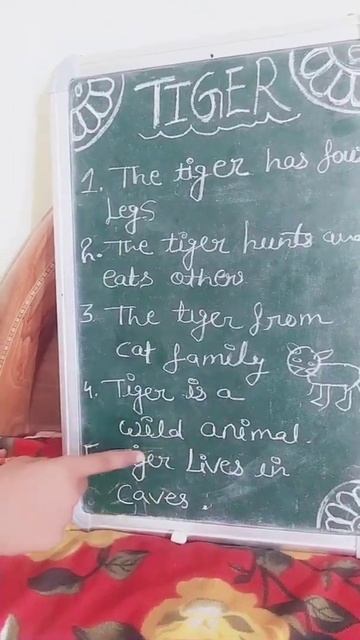 TIGER
1. The tiger has four
Legs
2. The tiger hunts and
eats other
3. The tiger from
cat family
4. Tiger is a
wild animal.
Lives in
Caves.